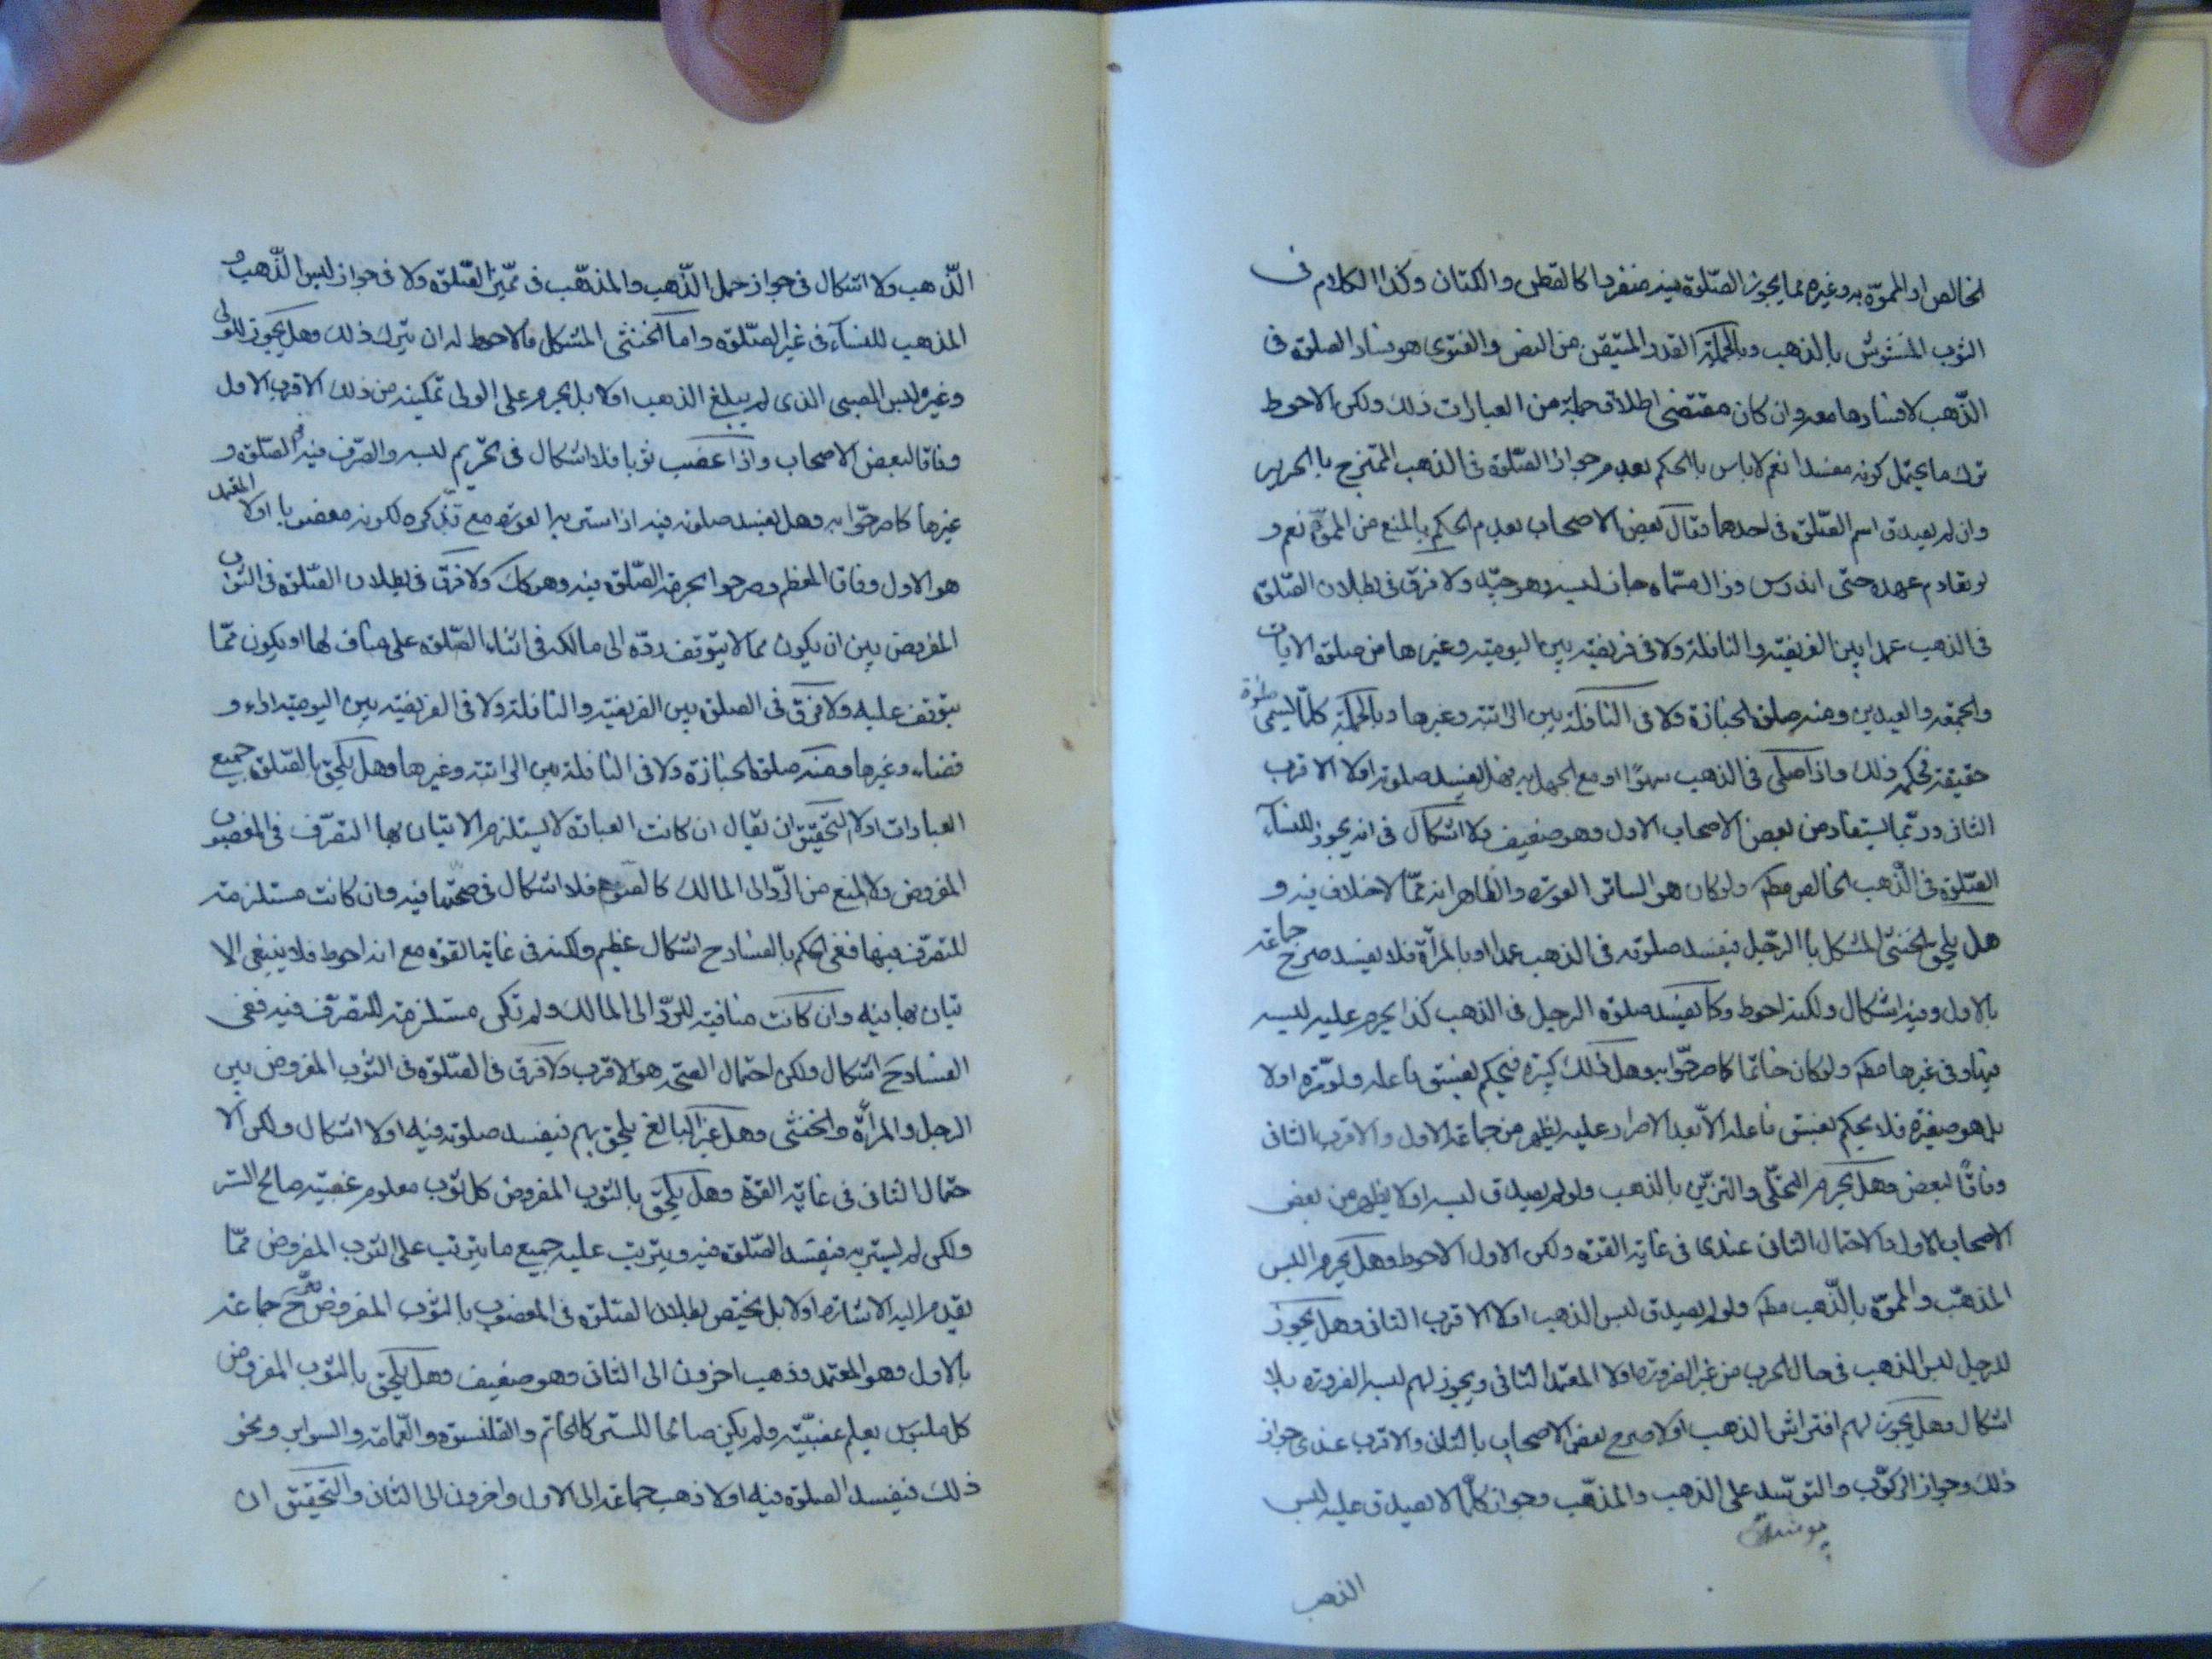 الخالص او المموّه به وغيره مما يجوز الصّلوة فيه منفردا كالقطن والكتان وكذا الكلام فى
الثوب المنسوج بالذهب وبالجملة القدر المتيقن من النص والفتوى هو فساد الصلوة فى
الذّهب لا فسادها معه وان كان مقتضى اطلاق جملة من العبارات ذلك ولكن الاحوط
ترك ما يحتمل كونه مفسدا نعم لا باس بالحكم بعدم جواز الصّلوة فى الذهب الممتزج بالحرير
وان لم يصدق اسم الصّلوة فى احدهما وقال بعض الاصحاب بعدم الحكم بالمنع من المموّه نعم و
لو تقادم عهده حتى اندرس وزال مسمّاه جاز لبسه وهو جيّد ولا فرق فى بطلان الصّلوة
فى الذهب عمدا بين الفريضة والنافلة ولا فى فريضة بين اليومية وغيرها من صلوة الايات
والجمعة والعيدين ومنه صلوة الجنازة ولا فى النافلة بين الراتبة وغيرها وبالجملة كلّما يسمى صلوة
حقيقة فحكمه ذلك واذا صلّى فى الذهب سهوًا او مع الجهل به فهل يفسد صلوته اولا الاقرب
الثانى وربّما يستفاد من بعض الاصحاب الاول وهو ضعيف ولا اشكال فى انه يجوز للنسآء
الصّلوة فى الذّهب الخالص مط ولو كان هو الساتر العورة والظاهر انه ممّا لا خلاف فيه و
هل يلحق الخنثى المشكل بالرّجل فيفسد صلوته فى الذهب عمدا او بالمرأة فلا يفسد صرح جماعة
بالاول وفيه اشكال ولكنه احوط وكما يفسد صلوة الرجل فى الذهب كذا يحرم عليه لبسه
فيها وفى غيرها مط ولو كان خاتما كما صرحّوا به وهل ذلك كبيرة فيحكم بفسق فاعله ولو مرّة اولا
بل هو صغيرة فلا يحكم بفسق فاعله الّا بعد الاصرار عليه يظهر من جماعة الاول والاقرب الثانى
وفاقًا لبعض وهل يحرم التحلّى والتزيّن بالذهب ولو لم يصدق لبسه اولا يظهر من بعض
الاصحاب الاول والاحتمال الثانى عندى فى غاية القوة ولكن الاول الاحوط وهل يحرم اللبس
المذهّب والمموّه بالذّهب مط ولو لم يصدق لبس الذهب اولا الاقرب الثانى وهل يجوز
للرجل لبس الذهب فى حال الحرب من غير الضرورة اولا المعتمد الثانى ويجوز لهم لبسه الضرورة بلا
اشكال وهل يجوز لهم افتراش الذهب اولا صرح بعض الاصحاب بالثانى والاقرب عندى جواز
ذلك وجواز الركوب والتوسّد على الذهب والمذهّب وجواز كلّما لا يصدق عليه لبس
الذهب
الذّهب ولا اشكال فى جواز حمل الذّهب والمذهّب فى الصّلوة ولا فى جواز لبس الذّهب و
المذهب للنسآء فى غير الصّلوة واما الخنثى المشكل فالاحوط له ان يترك ذلك وهل يجوز للولى
وغيره لبس الصبى الذى لم يبلغ الذهب اولا بل يحرم على الولى تمكينه من ذلك الاقرب الاول
وفاقا لبعض الاصحاب واذا غصب ثوبا فلا اشكال فى تحريم لبسه والتصّرف فيه فى الصّلوة و
غيرها كما صرحّوا به وهل يفسد صلوته فيه اذا ستر به العورة مع تذكره لكونه مغصوبا اولا المعتمد
هو الاول وفاقا للمعظم وصرحوا بحرمة الصّلوة فيه وهو كك ولا فرق فى بطلان الصّلوة فى الثوب
المفروض بين ان يكون مما لا يتوقف ردّه الى مالكه فى اثناء الصّلوة على مناف لها او يكون ممّا
يتوقف عليه ولا فرق فى الصلوة بين الفريضة والنافلة ولا فى الفريضة بين اليومية اداء و
قضاء وغيرها ومنه صلوة الجنازة ولا فى النافلة بين الراتبة وغيرها وهل يلحق بالصّلوة جميع
العبادات اولا التحقيق ان يقال ان كانت العبادة لا يستلزم الاتيان بها التصّرف فى المغصوب
المفروض ولا المنع من الرّد الى المالك كالصّوم فلا اشكال فى صحّتها فيه وان كانت مستلزمة
للتصرّف فيها ففى الحكم بالفساد ح اشكال عظيم ولكنه فى غاية القوة مع انه احوط فلا ينبغى الا
تيان بها فيه وان كانت منافية للرّد الى المالك ولم تكن مستلزمة للتصرّف فيه ففى
الفساد ح اشكال ولكن احتمال الصّحة هو الاقرب ولا فرق فى الصّلوة فى الثوب المفروض بين
الرجل والمرأة والخنثى وهل غير البالغ يلحق بهم فيفسد صلوته فيه اولا اشكال ولكن الا
حتمال الثانى فى غاية القوة وهل يلحق بالثوب المفروض كل ثوب معلوم غصبيّته صالح الستر
ولكن لم يستر به فيفسد الصّلوة فيه ويترتب عليه جميع ما يترتب على الثوب المفروض ممّا
تقدم اليه الاشارة اولا بل يختص بطلان الصّلوة فى المغصوب بالثوب المفروض صّرح جماعة
بالاول وهو المعتمد وذهب اخرون الى الثانى وهو ضعيف وهل يلحق بالثوب المفروض
كل ملبوس يعلم غصبيّته ولم يكن صالحا للستر كالخاتم والقلنسوة والعمامة والسوار ونحو
ذلك فيفسد الصلوة فيه اولا ذهب جماعة الى الاول واخرون الى الثانى والتحقيق ان